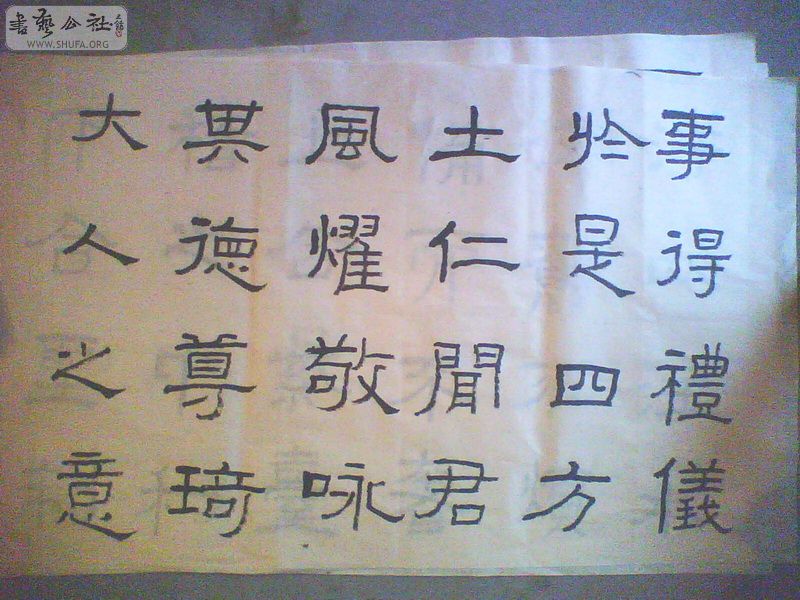 事得禮儀
於是四方
土仁聞君
風燿敬咏
其德尊琦
大人之意
書藝公社
WWW.SHUFA.ORG